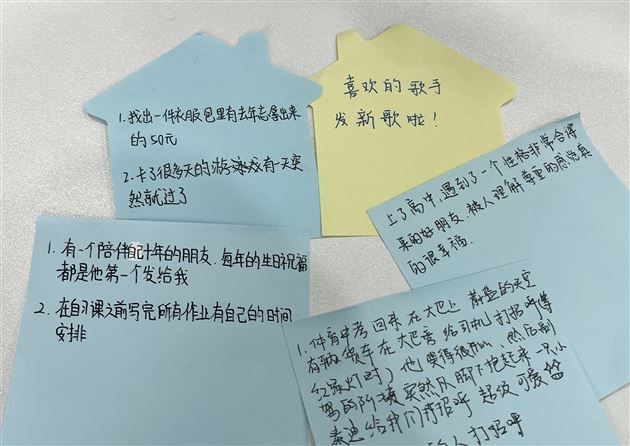 1. 找出一件衣服包里有去年忘拿出来
的50元
2. 卡了很多天的游戏有一天突
然就过了
喜欢的歌手
发新歌啦!
上了高中,遇到了一个性格非常合得
来的好朋友.被人理解尊重的感觉真
的很幸福.
1. 有一个陪伴自己十年的朋友.每年的生日祝福
都是他第一个发给我
2. 在自习课之前写完所有作业有自己的时间
安排
1. 体育中考回来 在大巴上 蔚蓝的天空
有辆货车在大巴旁 给司机打招呼(等
红绿灯时)他笑得很开心,然后到
突然从脚下抱起来一只小
泰迪给我们打招呼 超级可爱
人打招呼